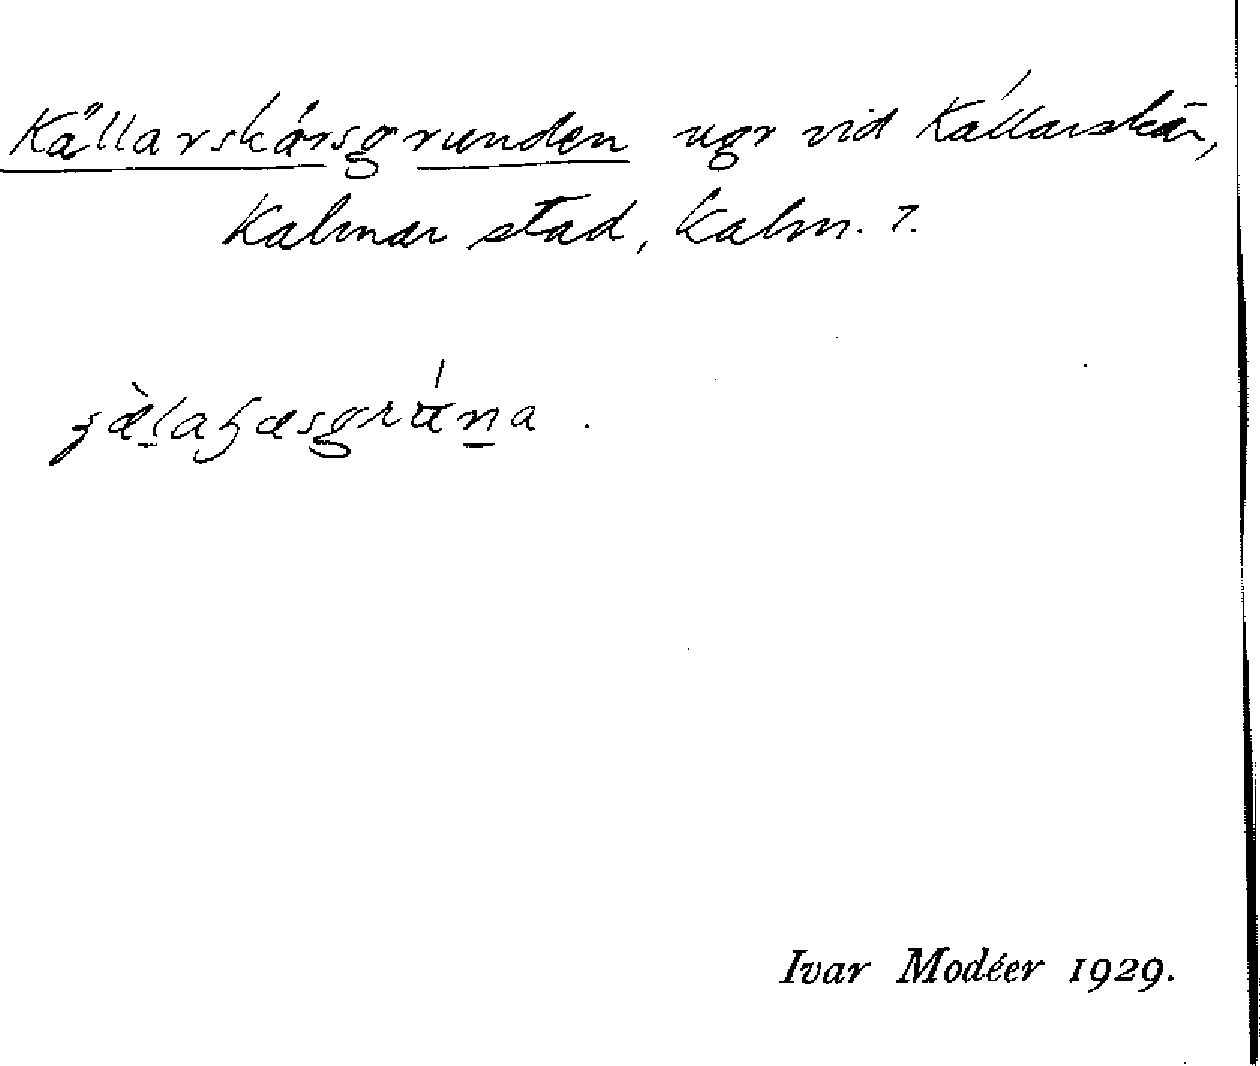 Källarskärsgrunden ugr vid Källarskär,
Kalmar stad, Kalm. 7.
Ivar Modéer 1929.